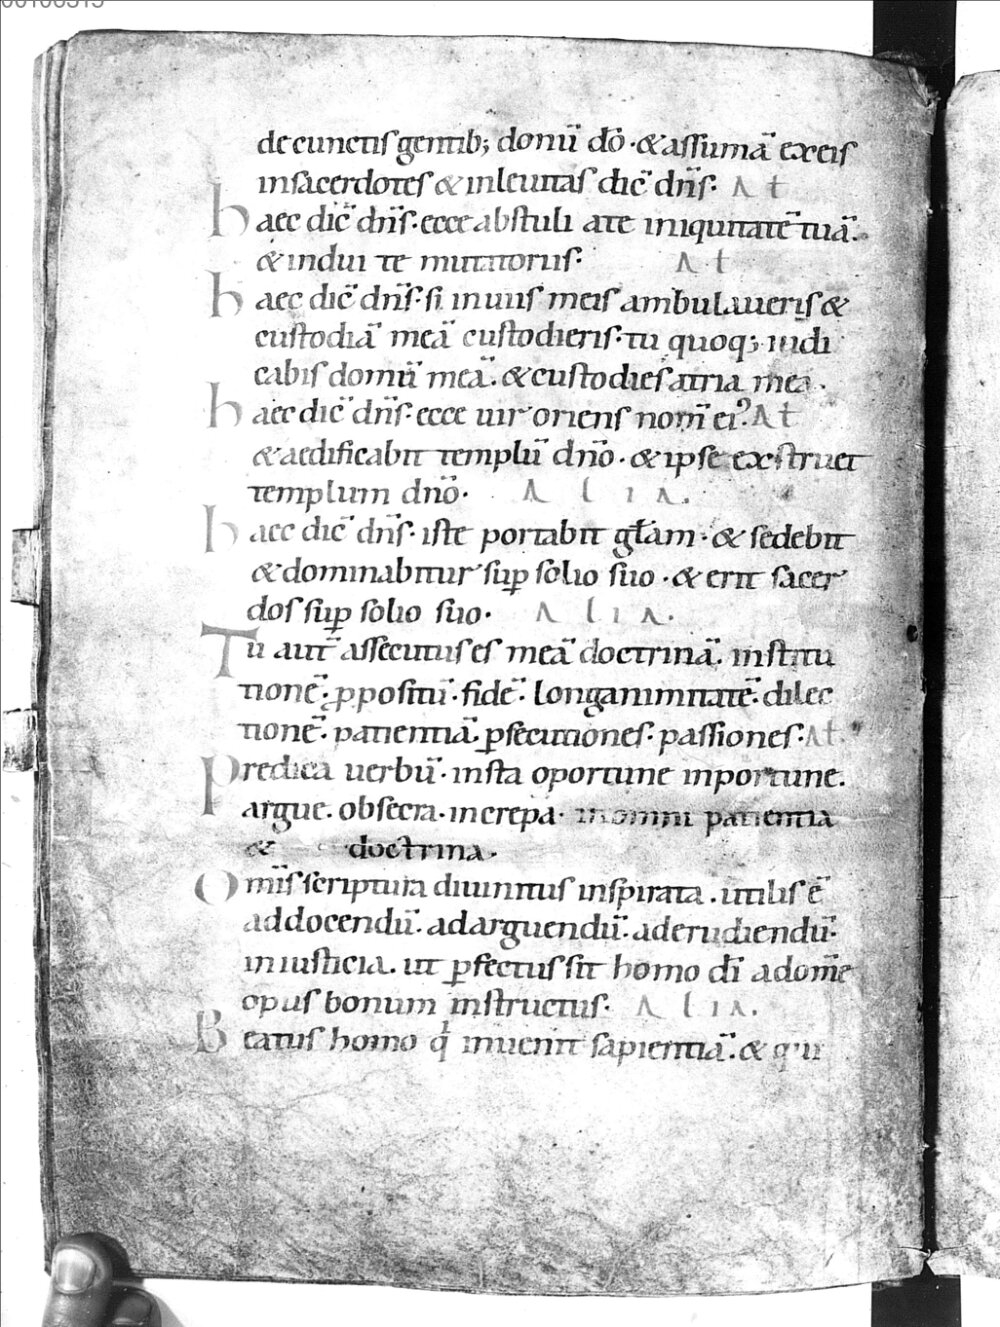 de cunctis gentib; domū dō · & assumā ex eis
in sacerdotes & in leuitas dic̄ dn̄s · A t
haec dic̄ dn̄s · ecce abstuli a te iniquitatē tuā ·
& indui te mutatoriis · A t
haec dic̄ dn̄s · si in uiis meis ambulaueris &
custodiā meā custodieris · tu quoq; iudi
cabis domū meā · & custodies atria mea ·
haec dic̄ dn̄s · ecce uir oriens nom̄ ei⁹ · A t
& aedificabit templū dn̄o · & ipse exstruet
templum dn̄o · A l i a .
haec dic̄ dn̄s · iste portabit gl̄am · & sedebit
& dominabitur sup̱ solio suo · & erit sacer
dos sup̱ solio suo · A l i a .
Tu aut̄ assecutus es meā doctrinā · institu
tionē · p̱positū · fidē · longanimitatē · dilec
tionē · patientiā · p̱secutiones · passiones · A t .
Predica uerbū · insta oportune inportune .
argue . obsecra · increpa · in omni patientia
& doctrina ·
Omīs scriptura diuinitus inspirata . utilis ē
ad docendū · ad arguendū · ad erudiendū ·
in iusticia . ut p̱fectus sit homo dī ad om̄e
opus bonum instructus · A l i a .
Beatus homo qͥ inuenit sapientiā · & qui